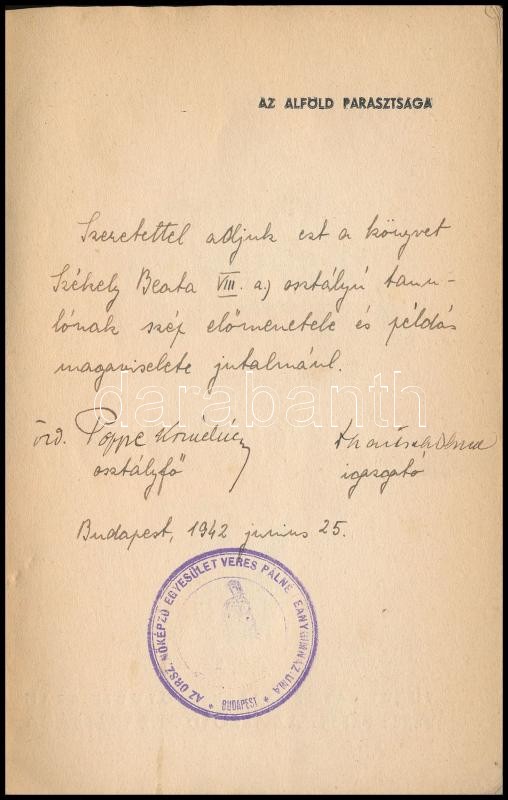 AZ ALFÖLD PARASZTSÁGA
Szeretettel adjuk ezt a könyvet
Széhely Beata VIII. a.) osztályú tanu-
lónak szép előmenetele és példás
magaviselete jutalmául.
özv. Poppe Kornélné
osztályfő
igazgató
Budapest, 1942 június 25.
AZ ORSZ. NŐKÉPZŐ EGYESÜLET VERES PÁLNÉ LEÁNYGIMNÁZIUMA
* BUDAPEST *
darabanth